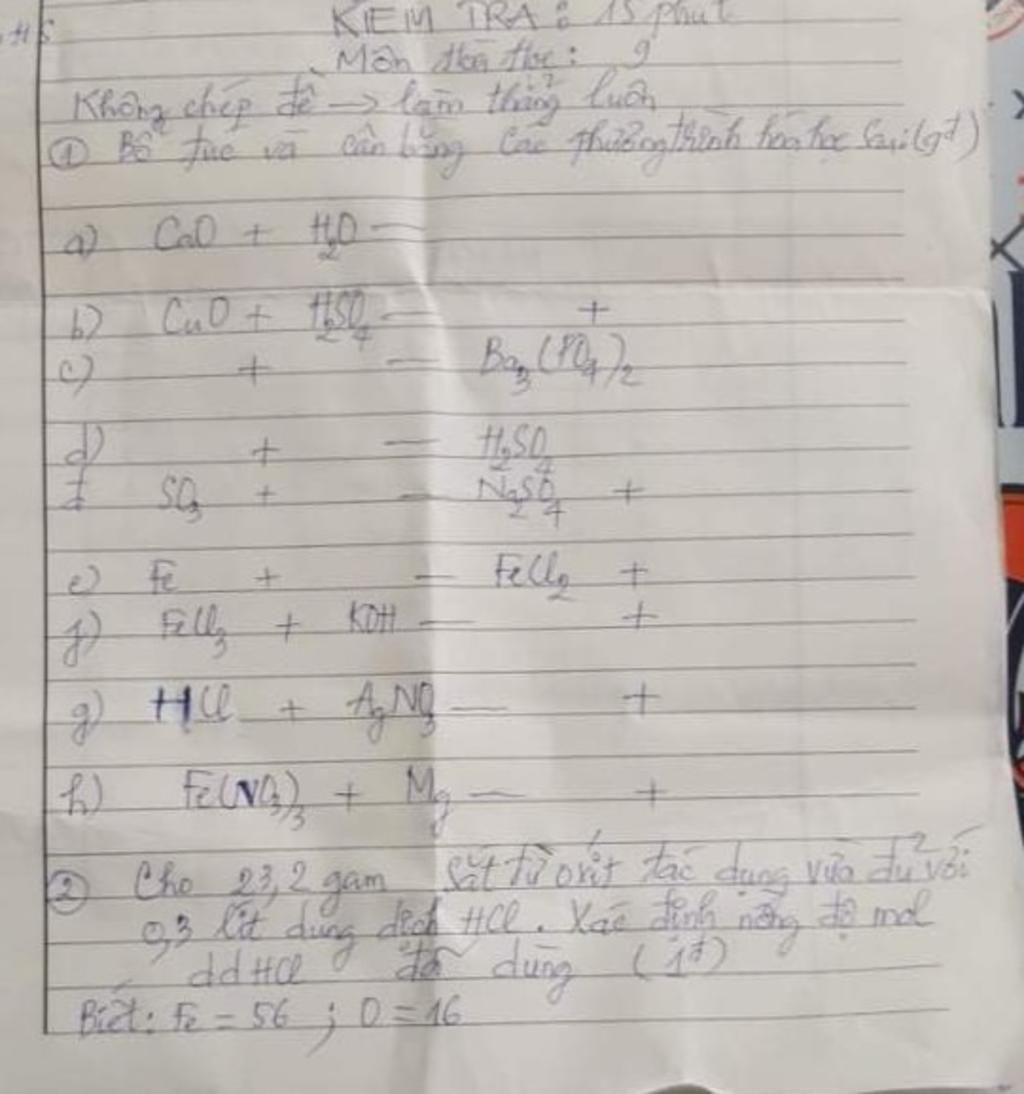 KIỂM TRA : 15 phút
Môn Hóa học : 9
Không chép đề → làm thẳng luôn
① Bổ túc và cân bằng các phương trình hóa học sau: (9đ)
a) CaO + H₂O —
b) CuO + H₂SO₄ — +
c) + — Ba₃(PO₄)₂
d) + — H₂SO₄
SO₃ + — Na₂SO₄ +
e) Fe + — FeCl₂ +
f) FeCl₃ + KOH — +
g) HCl + AgNO₃ — +
h) Fe(NO₃)₃ + Mg — +
② Cho 23,2 gam Sắt từ oxit tác dụng vừa đủ với
0,3 lít dung dịch HCl. Xác định nồng độ mol
dd HCl đã dùng (1đ)
Biết: Fe = 56 ; O = 16